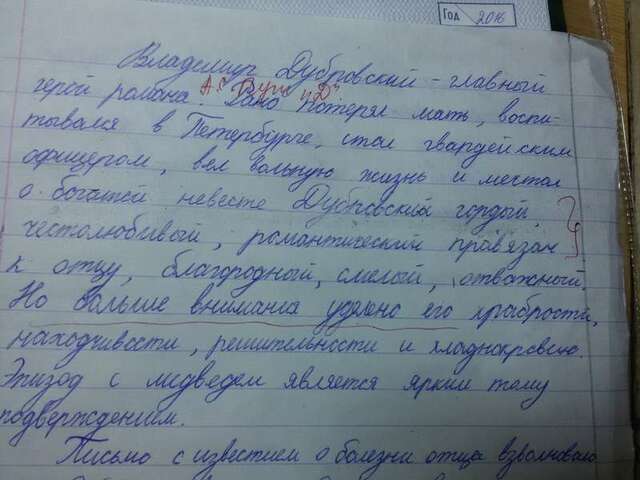 Год 2016
Владемир Дубровский - главный
А.С. Пуш "Д"
герой романа. Рано потерял мать, воспи-
тывался в Петербурге, стал гвардейским
офицером, вел вольную жизнь и мечтал
о богатей невесте Дубровский гордый,
честолюбивый, романтический привязан
к отцу, благородный, смелый, отважный.
Но больше внимания уделено его храбрости,
находчивости, решительности и хладнокровию.
Эпизод с медведем является ярким тому
подверждением.
Письмо с известием о болезни отца взволновало